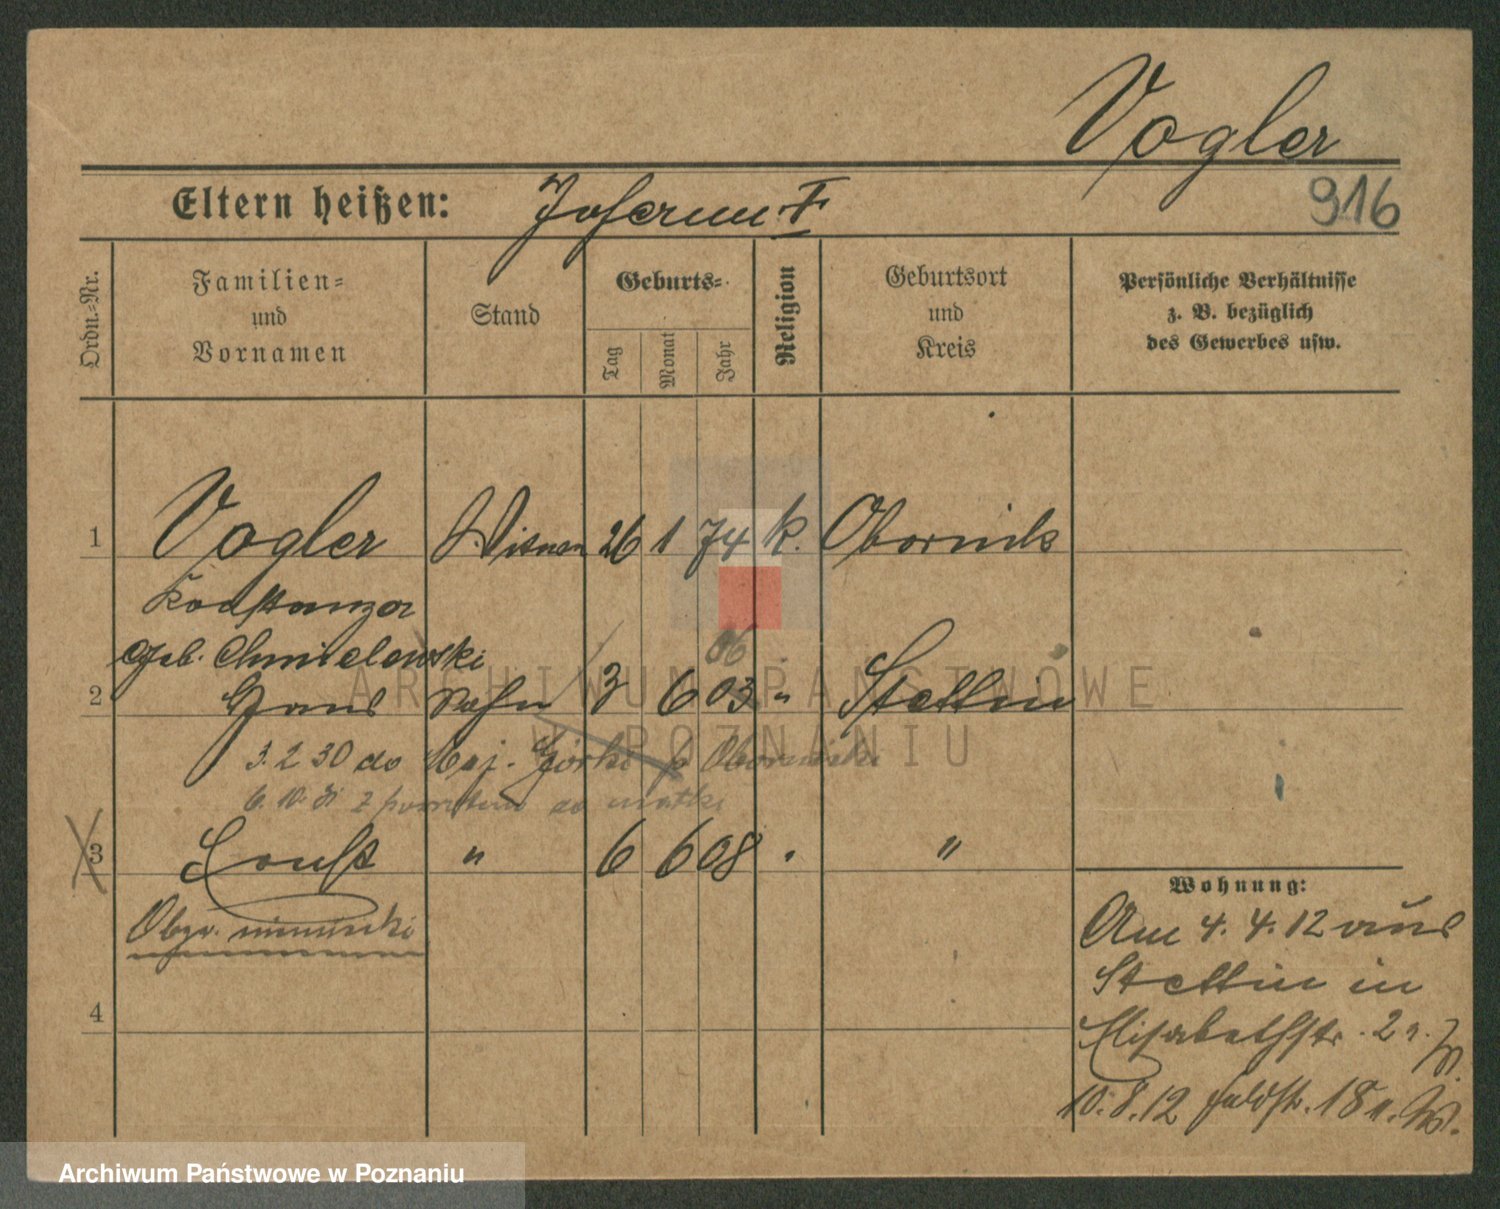 Vogler
Eltern heißen:
916
Ordn.-Nr.
Familien- und Vornamen
Stand
Geburts-
Tag
Monat
Jahr
Religion
Geburtsort und Kreis
Persönliche Verhältnisse
z. B. bezüglich
des Gewerbes usw.
1 Vogler 26 1 74 k. Obornik
Konstanza
geb. Chmielewski
06
2 Hans Sohn 3 6 03 " Stettin
3.2 30 do Maj. Górki p Oborniki
z powrotem do matki
3 Ernst " 6 6 08 " "
Obyw. niemiecki
4
Wohnung:
Am 4. 4. 12 aus
Stettin in
Elisabethstr. 2
10.8.12 Feldstr. 18
ARCHIWUM PAŃSTWOWE
W POZNANIU
Archiwum Państwowe w Poznaniu